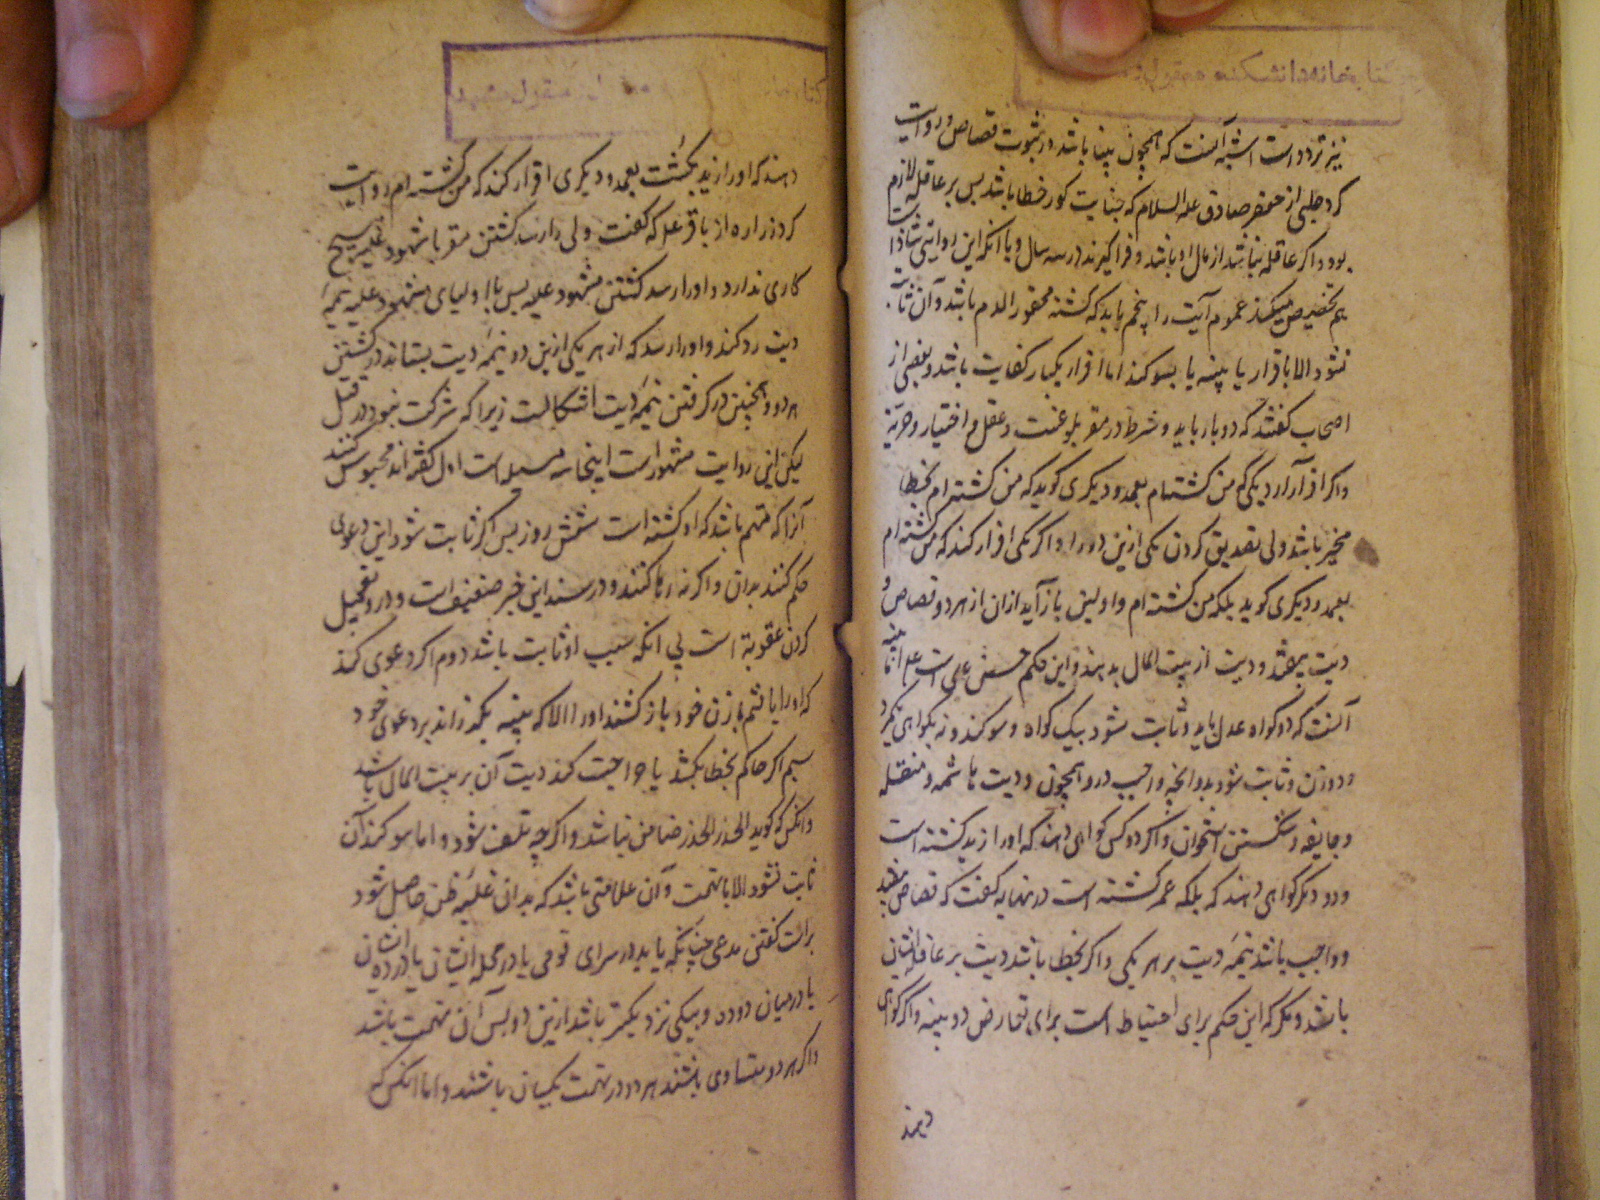 کتابخانه دانشکده معقول و
نیز تردد است اشبه آنست که همچون بینا باشد در ثبوت قصاص و روایت
کرد حلبی از جعفر صادق علیه السلام که جنایت کور خطا باشد پس بر عاقله لازم
بود و اگر عاقله نباشد از مال او باشد و فرا گیرند در سه سال و با آنکه این روایتی شاذ است
تخصیص میکند عموم آیت را پنجم باید که کشته محقون الدم باشد و آن ثابت
نشود الا باقرار یا بینه یا بسوکند اما اقرار یکبار کفایت باشد و بعضی از
اصحاب گفتند که دو بار باید و شرط در مقر بلوغست و عقل و اختیار و حریّة
و اکر اقرار آرد یکی که من کشته‌ام بعمد و دیکری کوید که من کشته‌ام بخطا
مخیر باشد ولی بتصدیق کردن یکی ازین دو را و اکر یکی اقرار کند که من کشته‌ام
بعمد و دیکری کوید بلکه من کشته ام و اولین باز آید ازان از هر دو قصاص و
دیت بیفتد و دیت از بیت المال بدهند و این حکم حسن بن علی است علیهما السلام اما بینه
آنست که دو کواه عدل باید و ثابت نشود بیک کواه و سوکند و نه بکواهی یکمرد
و دو زن و ثابت شود بدو آنچه واجب درو همچون ودیت هاشمه و منقله
و جایفه و شکستن استخوان و اکر دو کس کواهی دهند که او را زید کشته است
و دو دیکر کواهی دهند که بلکه عمر کشته است در نهایه کفت که قصاص بیفتد
و واجب باشد نیمهٔ دیت بر هر یکی و اکر بخطا باشد دیت بر عاقله ایشان
باشد و مکر که این حکم برای احتیاط است برای تعارض دو بینه و اکر کواهی
دهند
دهند که او را زید بکشت بعمد و دیکری اقرار کند که من کشته ام روایت
کرد زراره از باقر علیه که کفت ولی را رسد کشتن مقر با شهود علیه بهیچ
کاری ندارد و او را رسد کشتن مشهود علیه پس با اولیای مشهود علیه نیمهٔ
دیت رد کند و او را رسد که از هر یکی ازین دو نیمهٔ دیت بستاند در کشتن
هر دو و همچنین در کرفتن نیمهٔ دیت اشکالست زیرا که شرکت نبود در قتل
لیکن این روایت مشهور است اینجا سه مسیله است اول کفته اند محبوس کنند
آنرا که متهم باشد که او کشته است شش روز پس اکر ثابت شود این دعوی
حکم کنند بدان و اکر نه رها کنند و در سند این خبر ضعیف است و درو تعجیل
کردن عقوبة است بی آنکه سبب او ثابت باشد دوم اکر دعوی کند
که او را یافتم با زن خود باز کشتند او را الا که بینه بکذراند بر دعوی خود
سیم اکر حاکم بخطا بکشد یا جراحت کند دیت آن بر بیت المال باشد
و آنکس که کوید الحذر الحذر ضامن نباشد و اکر چه تلف شود و اما سوکند آن
ثابت نشود الا با تهمت و آن علامتی باشد که بدان غلبهٔ ظن حاصل شود
براست کفتن مدعی چنانکه یابد در سرای قومی یا در محله ایشان یا در ده ایشان
یا در میان دو ده و بیکی نزدیکتر باشد ازین دو پس آن تهمت باشد
و اکر هر دو متساوی باشند هر دو در تهمت یکسان باشند و اما آنکس که